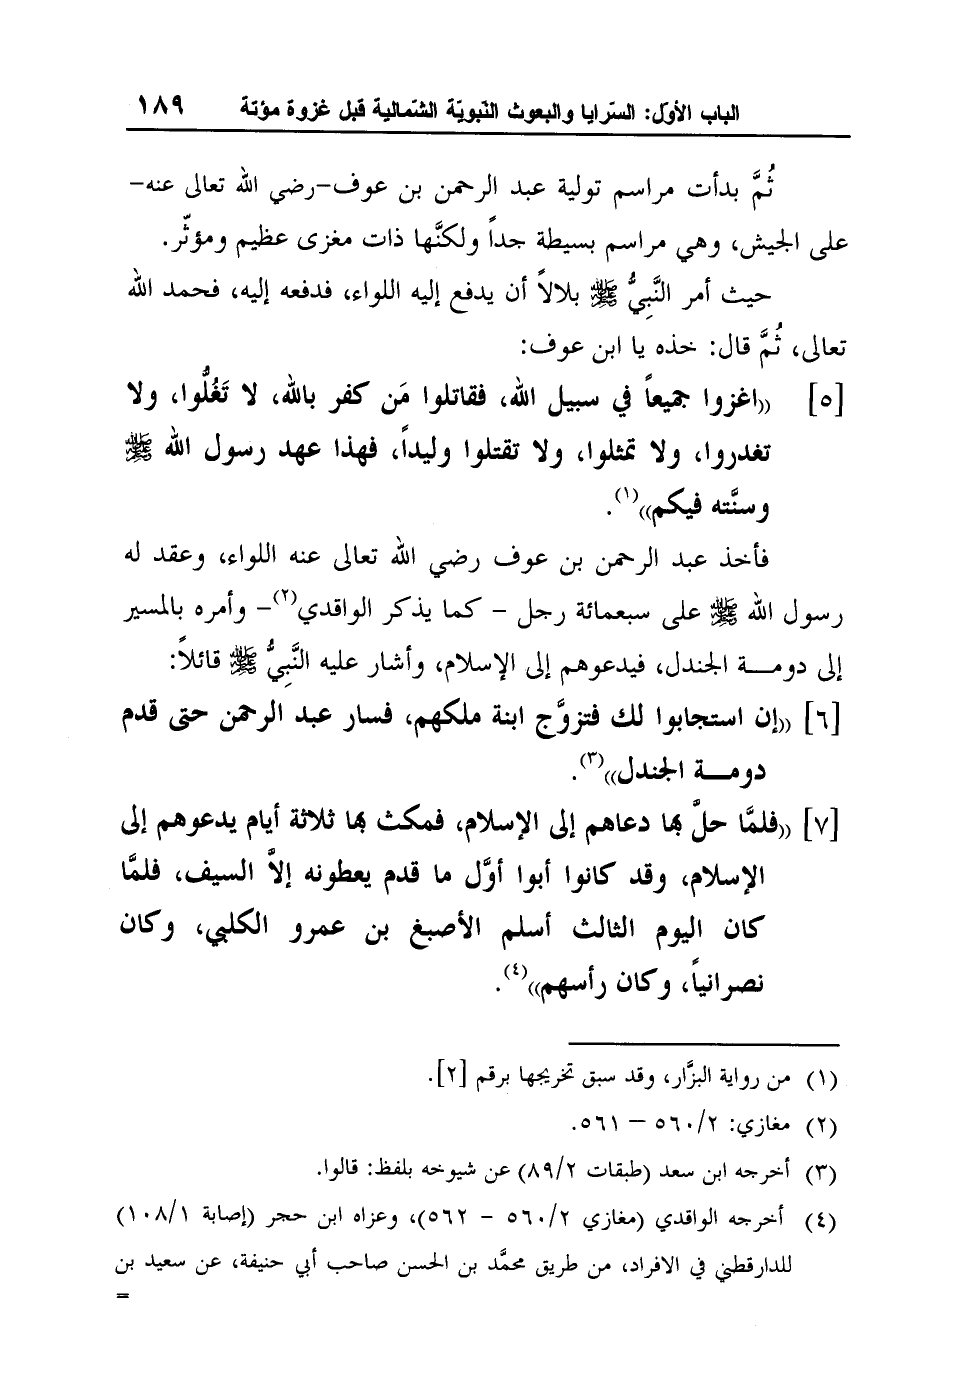 الباب الأوّل: السّرايا والبعوث النّبويّة الشّمالية قبل غزوة مؤتة ١٨٩
ثُمَّ بدأت مراسم تولية عبد الرحمن بن عوف-رضي الله تعالى عنه-
على الجيش، وهي مراسم بسيطة جداً ولكنَّها ذات مغزى عظيم ومؤثّر.
حيث أمر النَّبِيُّ ﷺ بلالاً أن يدفع إليه اللواء، فدفعه إليه، فحمد الله
تعالى، ثُمَّ قال: خذه يا ابن عوف:
[٥] ((اغزوا جميعاً في سبيل الله، فقاتلوا مَن كفر بالله، لا تَغُلُّوا، ولا
تغدروا، ولا تمثلوا، ولا تقتلوا وليداً، فهذا عهد رسول الله ﷺ
وسنَّته فيكم))(١).
فأخذ عبد الرحمن بن عوف رضي الله تعالى عنه اللواء، وعقد له
رسول الله ﷺ على سبعمائة رجل - كما يذكر الواقدي(٢)- وأمره بالمسير
إلى دومــة الجندل، فيدعوهم إلى الإسلام، وأشار عليه النَّبِيُّ ﷺ قائلاً:
[٦] ((إن استجابوا لك فتزوَّج ابنة ملكهم، فسار عبد الرحمن حتى قدم
دومــة الجندل))(٣).
[٧] ((فلمَّا حلَّ بها دعاهم إلى الإسلام، فمكث بها ثلاثة أيام يدعوهم إلى
الإسلام، وقد كانوا أبوا أوَّل ما قدم يعطونه إلاَّ السيف، فلمَّا
كان اليوم الثالث أسلم الأصبغ بن عمرو الكلبي، وكان
نصرانياً، وكان رأسهم))(٤).
(١) من رواية البزَّار، وقد سبق تخريجها برقم [٢].
(٢) مغازي: ٥٦٠/٢ - ٥٦١.
(٣) أخرجه ابن سعد (طبقات ٨٩/٢) عن شيوخه بلفظ: قالوا.
(٤) أخرجه الواقدي (مغازي ٥٦٠/٢ - ٥٦٢)، وعزاه ابن حجر (إصابة ١٠٨/١)
للدارقطني في الافراد، من طريق محمَّد بن الحسن صاحب أبي حنيفة، عن سعيد بن
=